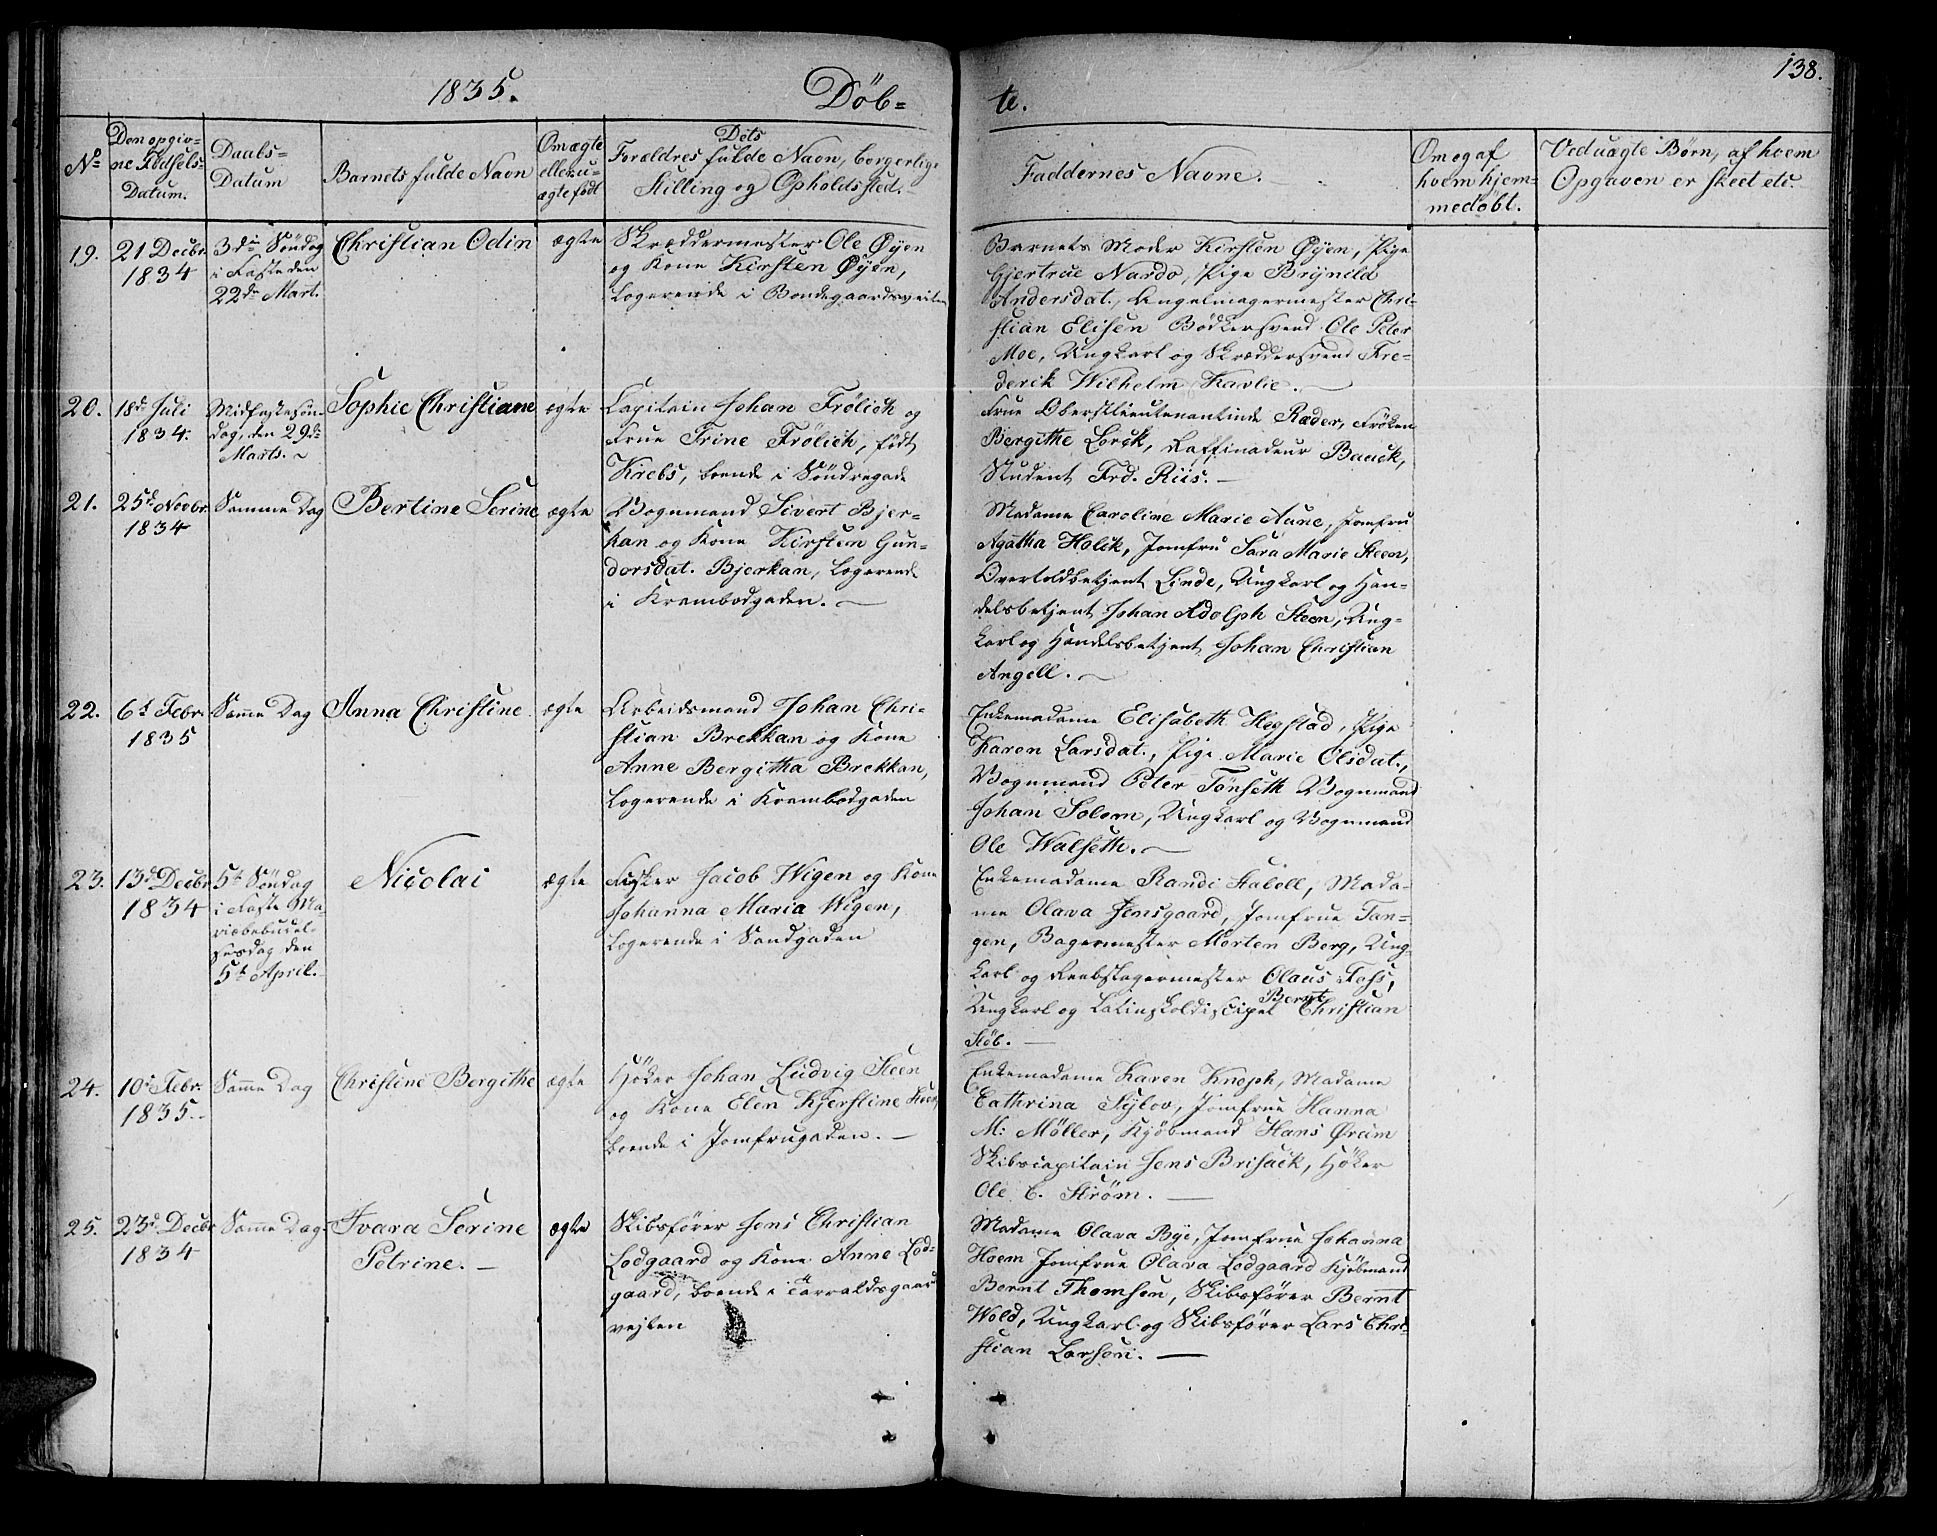 1835. Döb-
te. 138.
No
Den opgiv-
ne Fødsels-
Datum.
Daabs-
Datum
Barnets fulde Navn
Om ægte
eller u-
ægte født
Dets
Forældres fulde Navn, borgerlige
Stilling og Opholdssted.
Faddernes Navne.
Om og af
hvem hjem-
medøbt.
Ved uægte Børn, af hvem
Opgaven er skeet etc.
19.
21 Decbr
1834
3die Søndag
i Faste den
22de Mart.
Christian Odin
ægte
Skræddermester Ole Øyen
og Kone Kirsten Øyen,
logerende i Bondegaardsveiten
Barnets Moder Kirsten Øyen, Pige
Gjertrue Nardo, Pige Brynild
Andersdat., Angelmagermester Chri-
stian Elisen Bødkersvend Ole Peter
Moe, Ungkarl og Skræddersvend Fre-
derik Wilhelm Kavlie.
20.
18de Juli
1834.
Midfastesøn-
dag, den 29de
Marts.
Sophie Christiane
ægte
Capitain Johan Frölich og
Frue Trine Frölich, født
Krebs, boende i Söndregade
Frue Oberstlieutenantinde Ræder, Frøken
Bergithe Lorck, Raffinadeur Bauck,
Student Frd. Riis.
21.
25de Novbr.
1834
Samme Dag
Bertine Serine
ægte
Vognmand Sivert Bjer-
kan og Kone Kirsten Gun-
dersdat. Bjerkan, logerende
i Krambodgaden.
Madame Caroline Marie Aune, Jomfru
Agatha Holck, Jomfru Sara Marie Steen,
Overtoldbetjent Linde, Ungkarl og Han-
delsbetjent Johan Adolph Steen, Ung-
karl og Handelsbetjent Johan Christian
Angell.
22.
6te Febr.
1835
Samme Dag
Anna Christine
ægte
Arbeidsmand Johan Chri-
stian Brekkan og Kone
Anne Bergitha Brekkan,
logerende i Krambodgaden
Enkemadame Elisabeth Hegstad, Pige
Karen Larsdat., Pige Marie Olsdat.,
Vognmand Peter Tönseth Vognmand
Johan Solem, Ungkarl og Vognmand
Ole Walseth.
23.
13de Decbr
1834
5te Søndag
i Faste Ma-
riæbebudel-
sesdag den
5te April.
Nicolai
ægte
Fisker Jacob Wigen og Kone
Johanna Maria Wigen,
logerende i Sandgaden
Enkemadame Randi Stabell, Mada-
me Olava Jensgaard, Jomfrue Tan-
gen, Bagermester Morten Berg, Ung-
karl og Reebslagermester Olaus Foss,
Ungkarl og Latinskoldiscipel Bernt Christian
Støb.
24.
10de Febr.
1835.
Samme Dag
Christine Bergithe
ægte
Höker Johan Ludvig Steen
og Kone Elen Kjerstine Steen,
boende i Jomfrugaden.
Enkemadame Karen Knoph, Madame
Cathrina Sylov, Jomfrue Hanna
M: Møller, Kjöbmand Hans Ørum
Skibscapitain Jens Brisack, Höker
Ole C. Ström.
25.
23de Decbr
1834
Samme Dag
Ivara Serine
Petrine.
ægte
Skibsfører Jens Christian
Lodgaard og Kone Anne Lod-
gaard, boende i Tarraldsgaard-
vejten
Madame Olava Bye, Jomfrue Johanna
Hoem Jomfrue Olava Lodgaard Kjöbmand
Bernt Thomsen, Skibsfører Bernt
Wold, Ungkarl og Skibsfører Lars Chri-
stian Larsen.